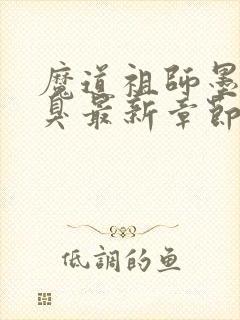 魔道祖師墨
臭最新章節
低調的鱼